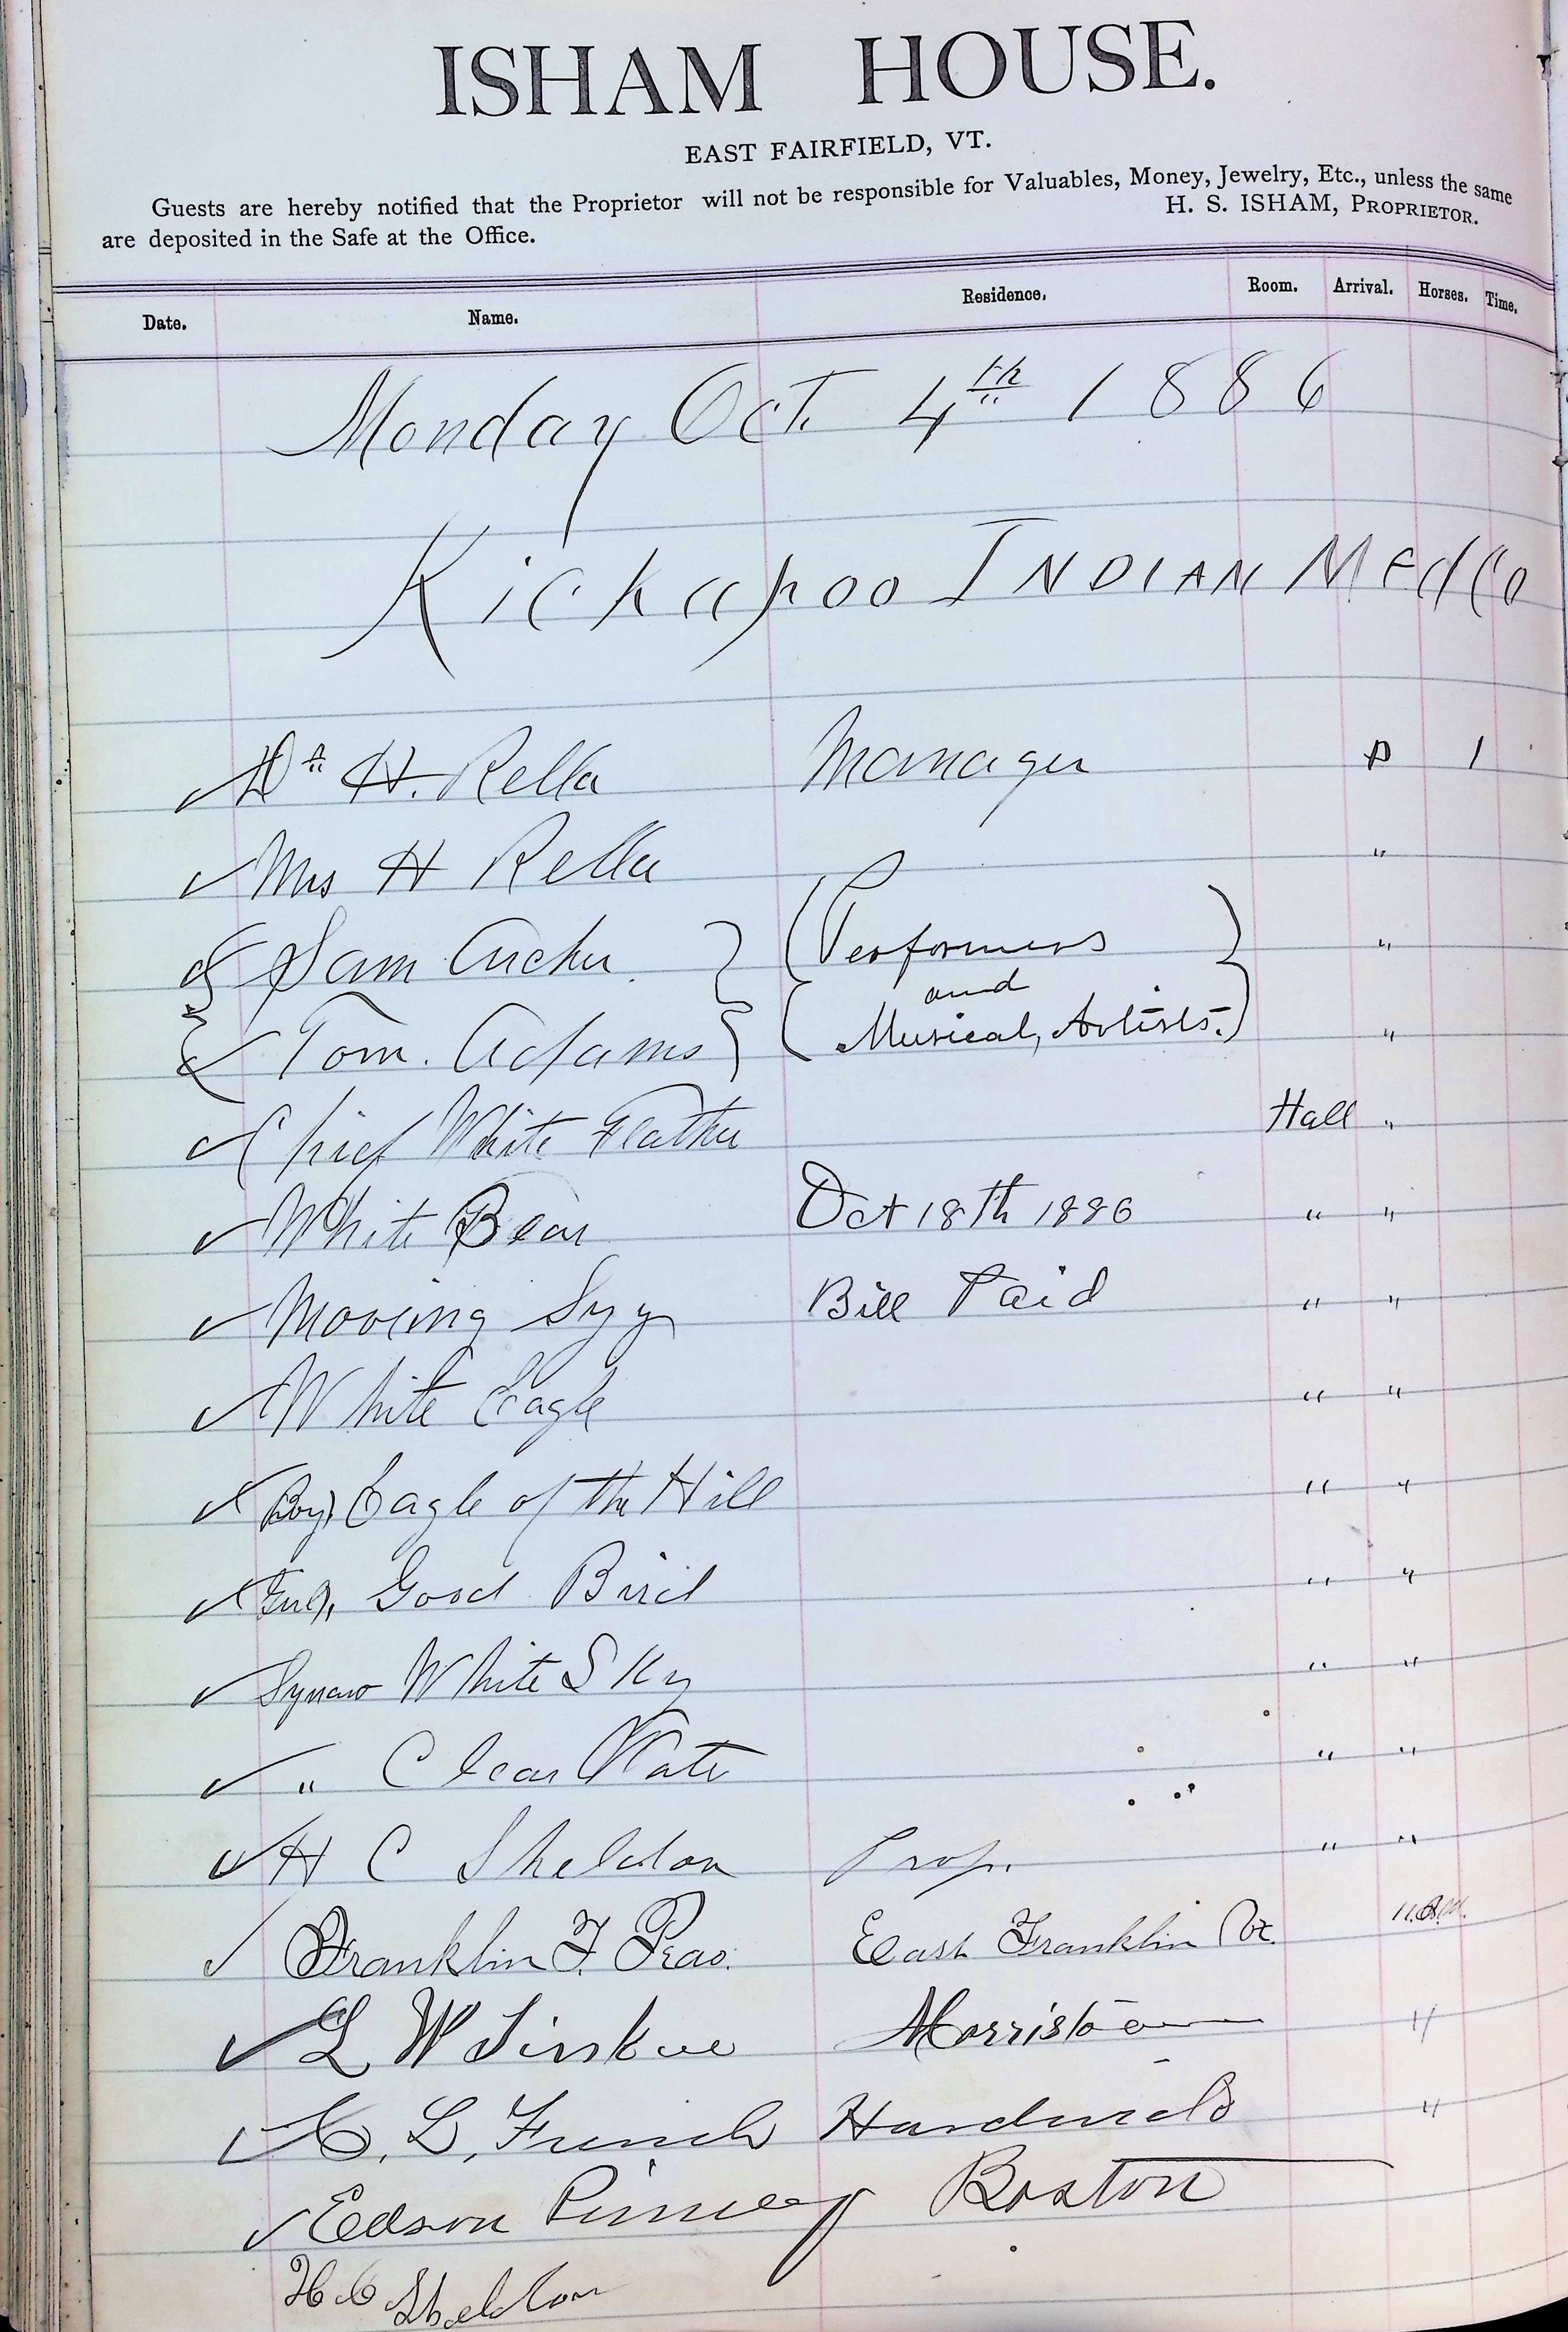 ISHAM HOUSE.
EAST FAIRFIELD, VT.
Guests are hereby notified that the Proprietor will not be responsible for Valuables, Money, Jewelry, Etc., unless the same
are deposited in the Safe at the Office. H. S. ISHAM, PROPRIETOR.
Date. Name. Residence. Room. Arrival. Horses. Time.
Monday Oct. 4th 1886
Kickapoo INDIAN Med Co
Dr H. Rella Manager 1
Mrs H Rella "
Sam Archer Performers "
and
Tom. Adams Musical, Artists. "
Chief White Feather Hall "
White Bear Oct 18th 1886 " "
Mooving Bill Paid " "
White Eagle " "
(Boy) Eagle of the Hill " "
Good Bird " "
White Sky " "
" Clear " "
H C Sheldon Prop. " "
Franklin F. East Franklin Vt.
L W "
French Hardwick "
Edson Boston
H C Sheldon